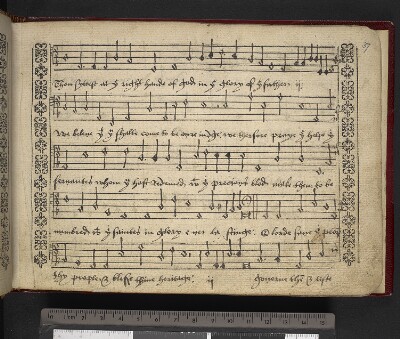 Thou syttest at y right hande of god in y glory of y father ij
We beleve y y shalt come to be oure iudge. we therfore praye y helpe y
servantes whom y hast redemed, wt y precious blode make them to be
nombred wt y saintes in glory ever lastinge. O lorde save y peop
thy people & blesse thyne heritage. ij governe them & lyft